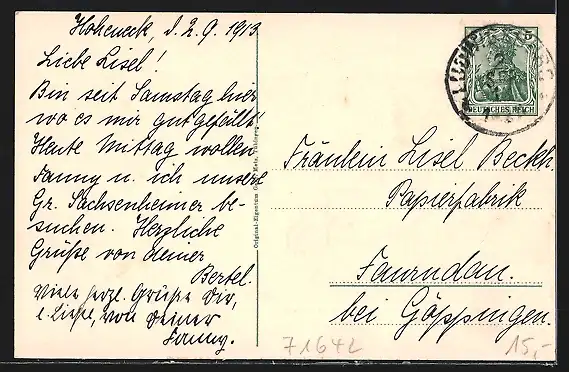 Hoheneck, d. 2.9.1913.
Liebe Lisel!
Bin seit Samstag hier
wo es mir gut gefällt!
Heute Mittag wollen
Fanny u. ich unsere
Gr. Sachsenheimer be-
suchen. Herzliche
Grüße von deiner
Bertel.
Viele herzl. Grüße Dir,
l. Liesel, von Deiner
Fanny.
DEUTSCHES REICH
Fräulein Lisel Beckh.
Papierfabrik
Faurndau.
bei Göppingen.
Original-Eigentum
71642
15,-